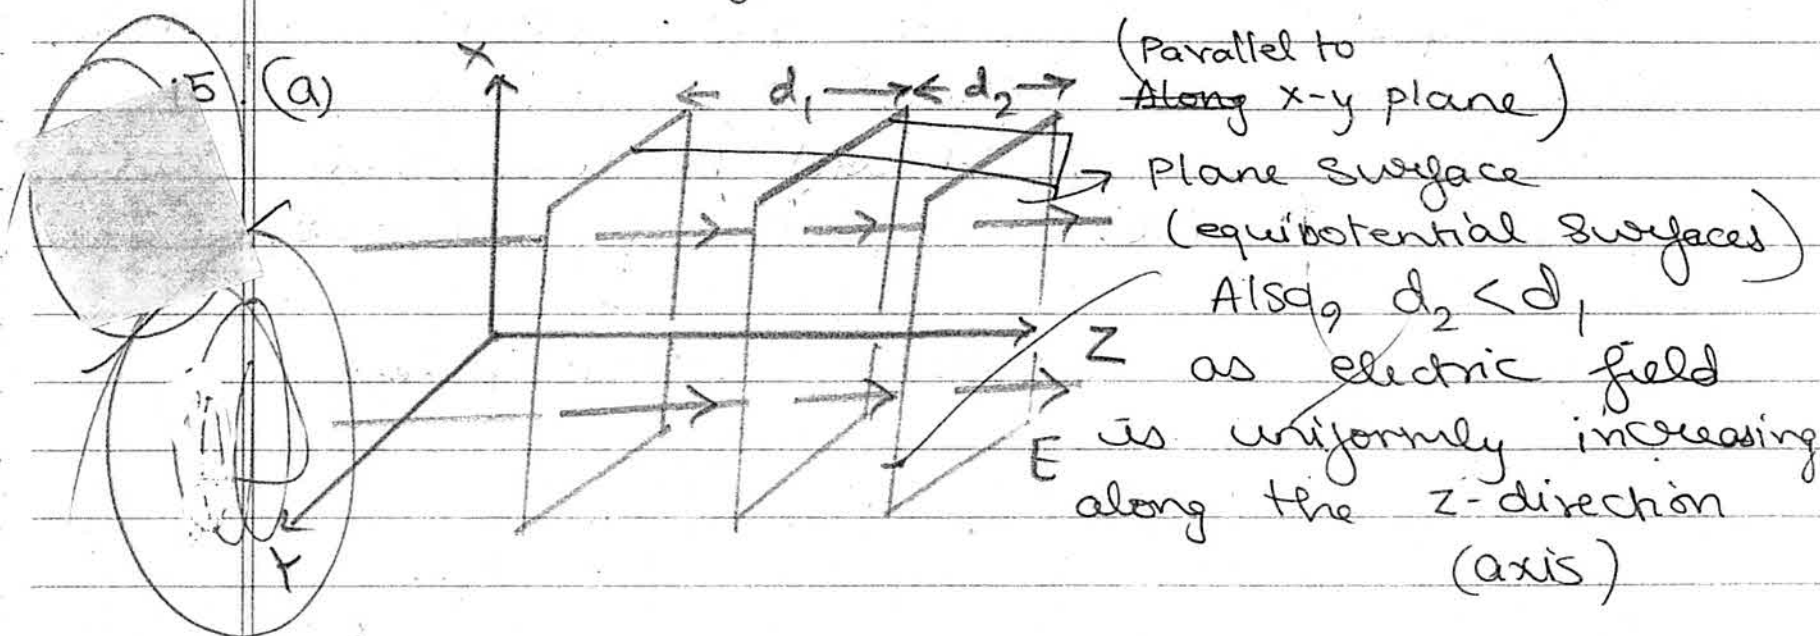 15 (a)
X
d₁
d₂
(Parallel to
Along x-y plane)
Plane surface
(equipotential surfaces)
Also, d₂ < d₁
Z
as electric field
E
is uniformly increasing
along the z-direction
(axis)
Y